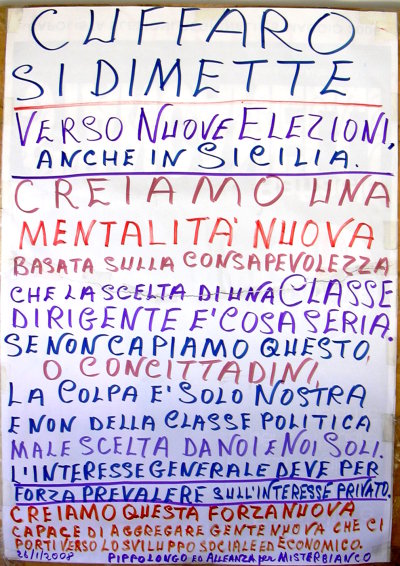 CUFFARO
SI DIMETTE
VERSO NUOVE ELEZIONI,
ANCHE IN SICILIA.
CREIAMO UNA
MENTALITA' NUOVA
BASATA SULLA CONSAPEVOLEZZA
CHE LA SCELTA DI UNA CLASSE
DIRIGENTE E' COSA SERIA.
SE NON CAPIAMO QUESTO,
O CONCITTADINI,
LA COLPA E' SOLO NOSTRA
E NON DELLA CLASSE POLITICA
MALE SCELTA DA NOI E NOI SOLI.
L'INTERESSE GENERALE DEVE PER
FORZA PREVALERE SULL'INTERESSE PRIVATO.
CREIAMO QUESTA FORZA NUOVA
CAPACE DI AGGREGARE GENTE NUOVA CHE CI
PORTI VERSO LO SVILUPPO SOCIALE ED ECONOMICO.
26/1/2008 PIPPO LONGO ED ALLEANZA per MISTERBIANCO